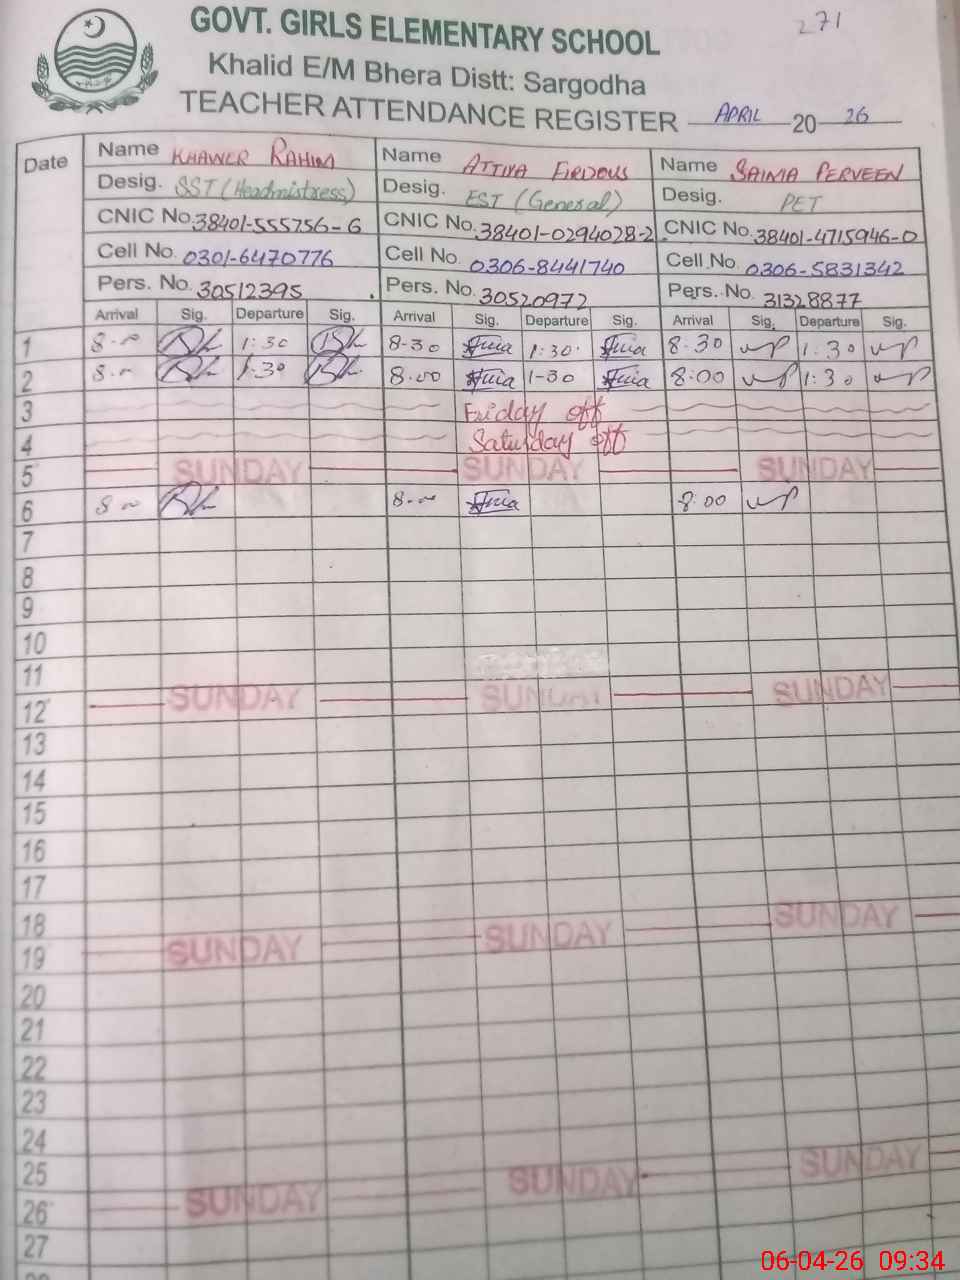 271
GOVT. GIRLS ELEMENTARY SCHOOL
Khalid E/M Bhera Distt: Sargodha
TEACHER ATTENDANCE REGISTER APRIL 20 26
Date Name KHAWER RAHIM Name ATTIYA FIRDOUS Name SAIMA PERVEEN
Desig. SST (Headmistress) Desig. EST (General) Desig. PET
CNIC No. 38401-555756-6 CNIC No. 38401-0294028-2 CNIC No. 38401-4715946-0
Cell No. 0301-6470776 Cell No. 0306-8441740 Cell No. 0306-5831342
Pers. No. 30512395 Pers. No. 30520972 Pers. No. 31328877
Arrival Sig. Departure Sig. Arrival Sig. Departure Sig. Arrival Sig. Departure Sig.
1 8-00 1:30 8-30 1:30 8:30 1:30
2 8-00 1-30 8.00 1-30 8:00 1:30
3 Friday off
4 Saturday off
5 SUNDAY SUNDAY SUNDAY
6 8-00 8-00 8:00
7
8
9
10
11
12 SUNDAY SUNDAY SUNDAY
13
14
15
16
17
18
19 SUNDAY SUNDAY SUNDAY
20
21
22
23
24
25
26 SUNDAY SUNDAY SUNDAY
27
06-04-26 09:34